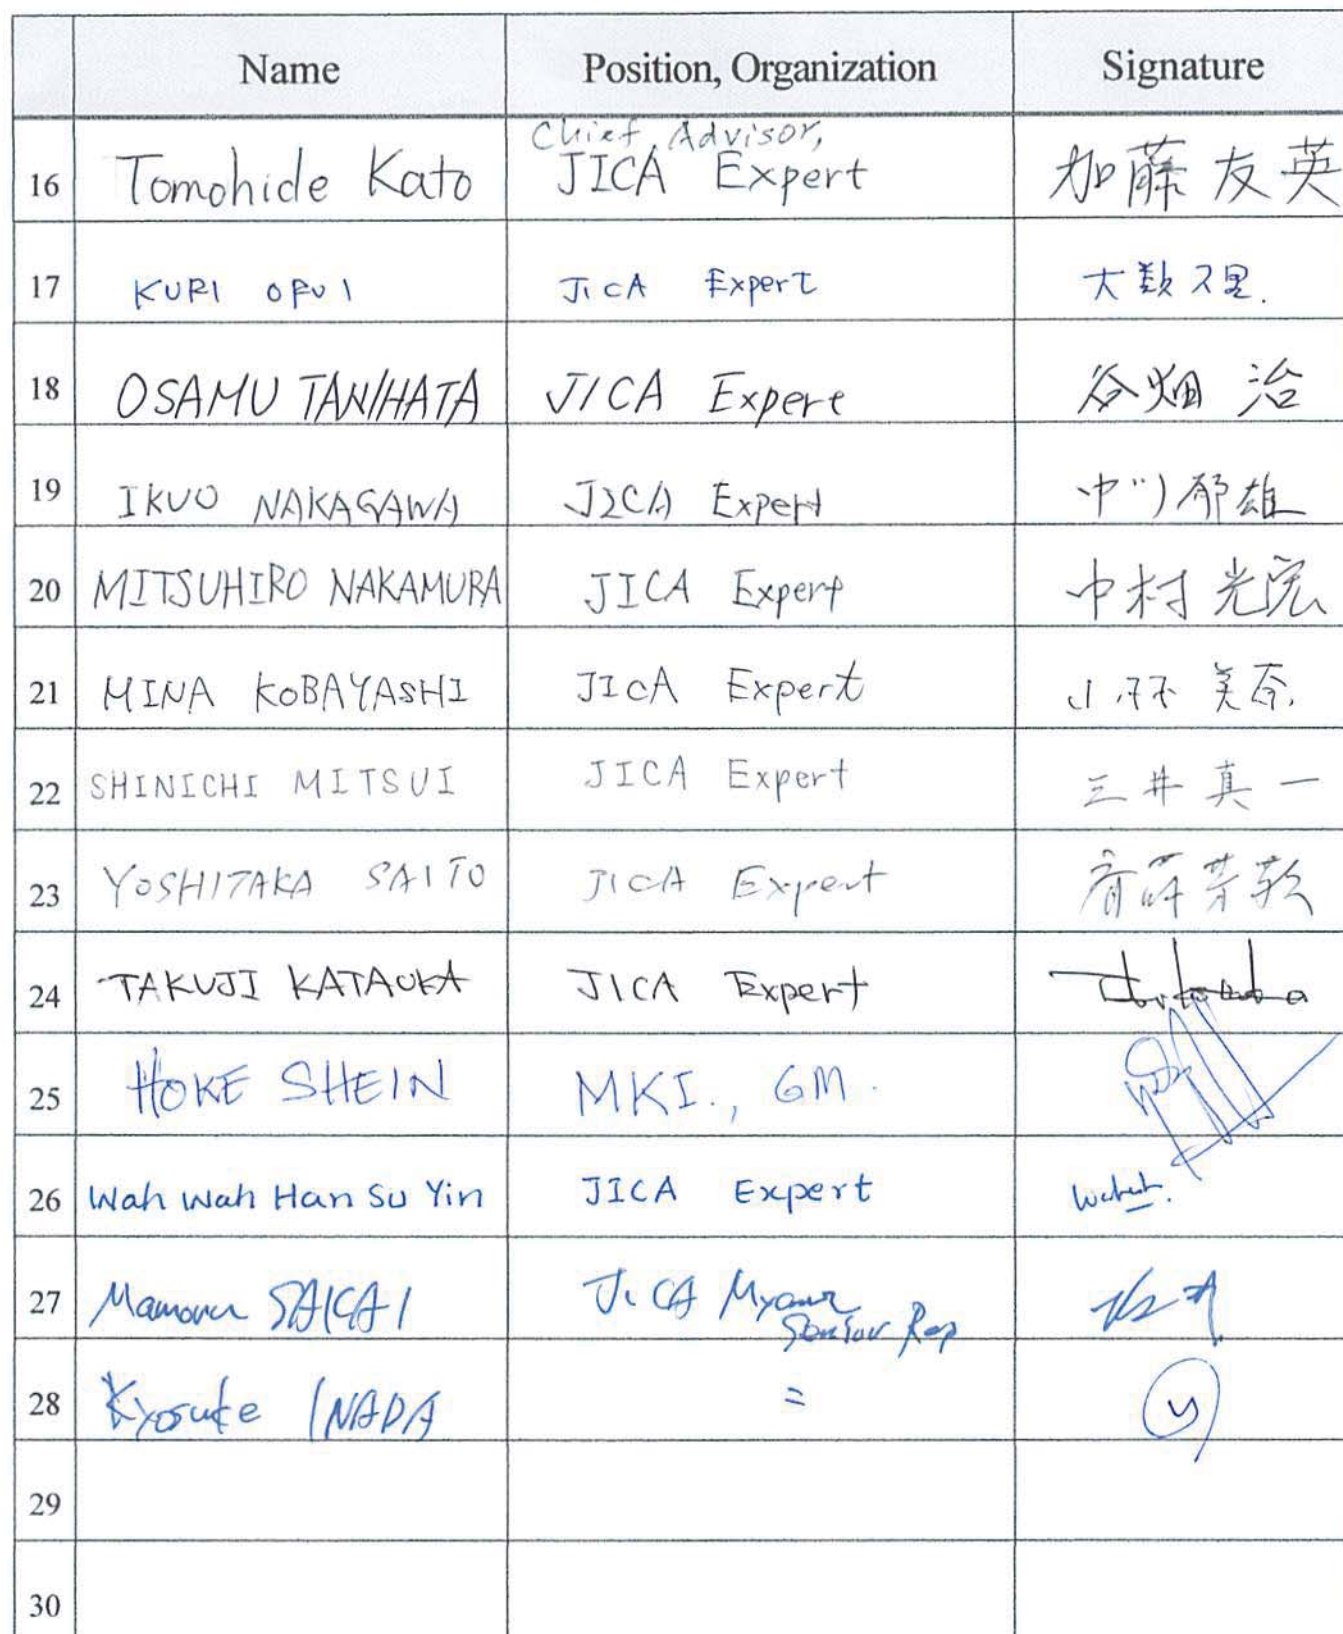 Name Position, Organization Signature
Chief Advisor,
16 Tomohide Kato JICA Expert 加藤友英
17 KURI JICA Expert
18 OSAMU TANIHATA JICA Expert 谷畑 治
19 IKUO NAKAGAWA JICA Expert 中川郁雄
20 MITSUHIRO NAKAMURA JICA Expert 中村光宏
21 MINA KOBAYASHI JICA Expert 小林 美奈
22 SHINICHI MITSUI JICA Expert 三井真一
23 YOSHITAKA SAITO JICA Expert
24 TAKUJI KATAOKA JICA Expert
25 HOKE SHEIN MKI., GM.
26 Wah Wah Han Su Yin JICA Expert
27 SAKAI JICA
Senior Rep
28 Kyosuke INADA =
29
30